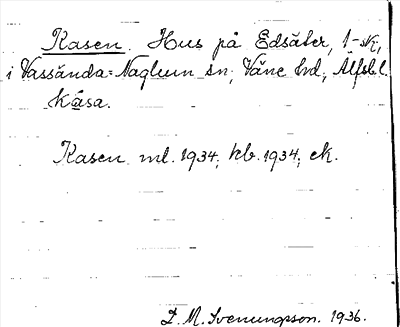 Kasen. Hus på Edsäter, 1-sk,
i Vassända-Naglum sn, Väne hd, Älfsb. l.
kåsa.
Kasen ml. 1934; kb. 1934; ek.
D. M. Svenungsson. 1936.